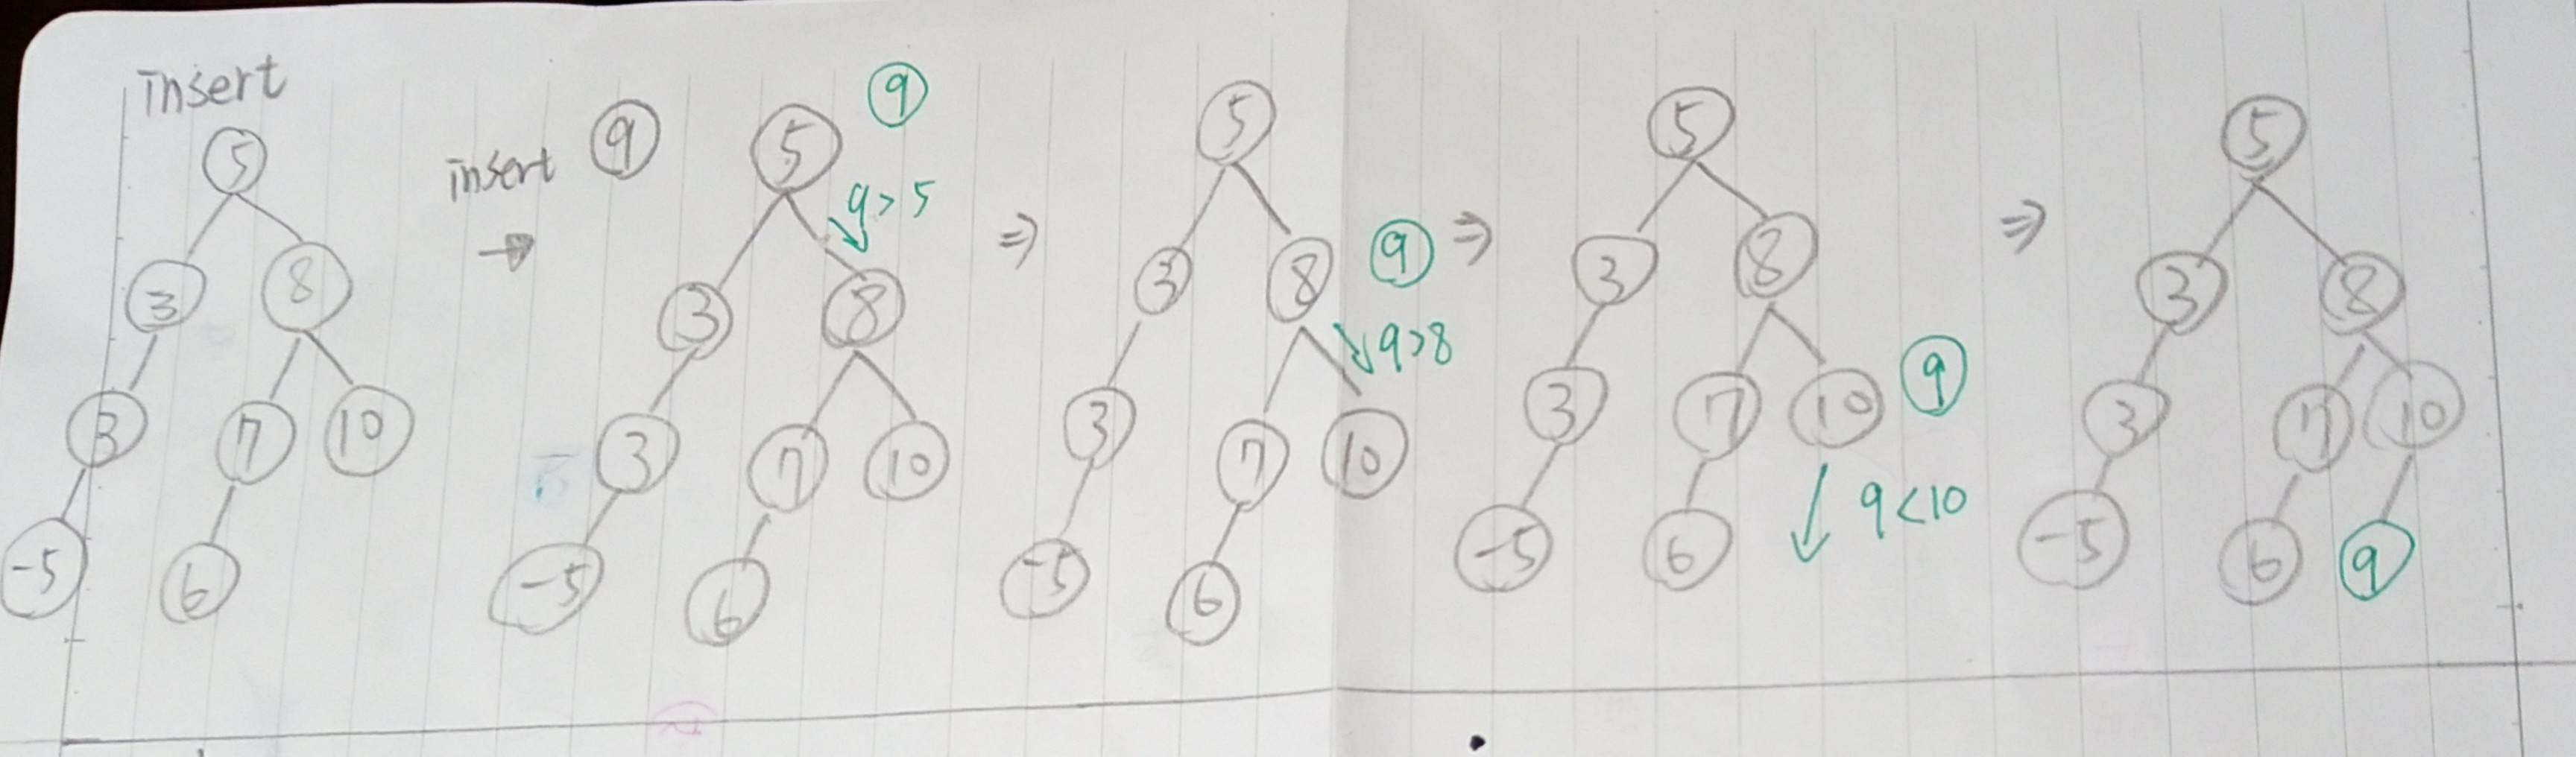 insert
5
3 8
3 7 10
-5 6
insert 9
5 9
9>5
3 8
3 7 10
-5 6
5
3 8 9
9>8
3 7 10
-5 6
5
3 8
3 7 10 9
9<10
-5 6
5
3 8
3 7 10
-5 6 9